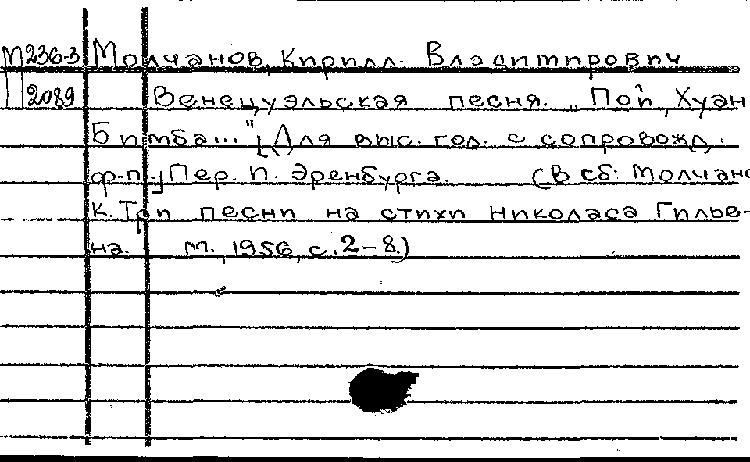 М236-3 Молчанов, Кирилл Владимирович
2089 Венецуэльская песня. "Пой, Хуан
Бимба..." [Для выс. гол. с сопровожд.
ф-п.] Пер. И. Эренбурга. (В сб: Молчанов
К. Три песни на стихи Николаса Гилье-
на. М., 1956, с. 2-8.)